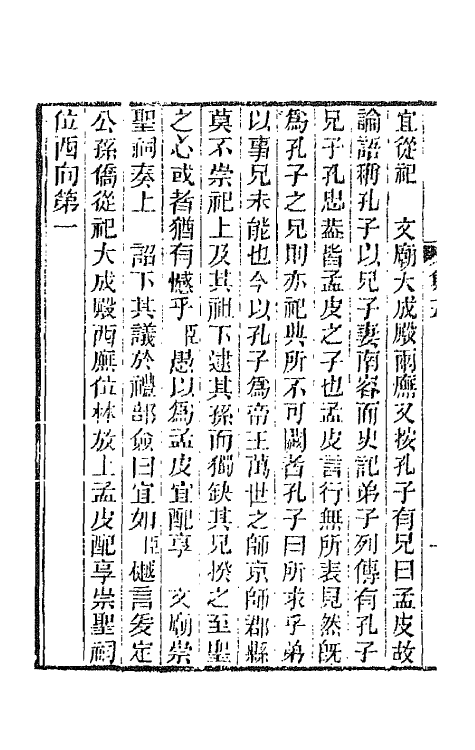 宜從祀　文廟大成殿兩廡又按孔子有兄曰孟皮故
論語稱孔子以兄子妻南容而史記弟子列傳有孔子
兄子孔忠蓋皆孟皮之子也孟皮言行無所表見然旣
爲孔子之兄則亦祀典所不可闕者孔子曰所求乎弟
以事兄未能也今以孔子爲帝王萬世之師京師郡縣
莫不崇祀上及其祖下逮其孫而獨缺其兄揆之至聖
之心或者猶有憾乎臣愚以爲孟皮宜配享　文廟崇
聖祠奏上　詔下其議於禮部僉曰宜如臣樾言爰定
公孫僑從祀大成殿西廡位林放上孟皮配享崇聖祠
位西向第一